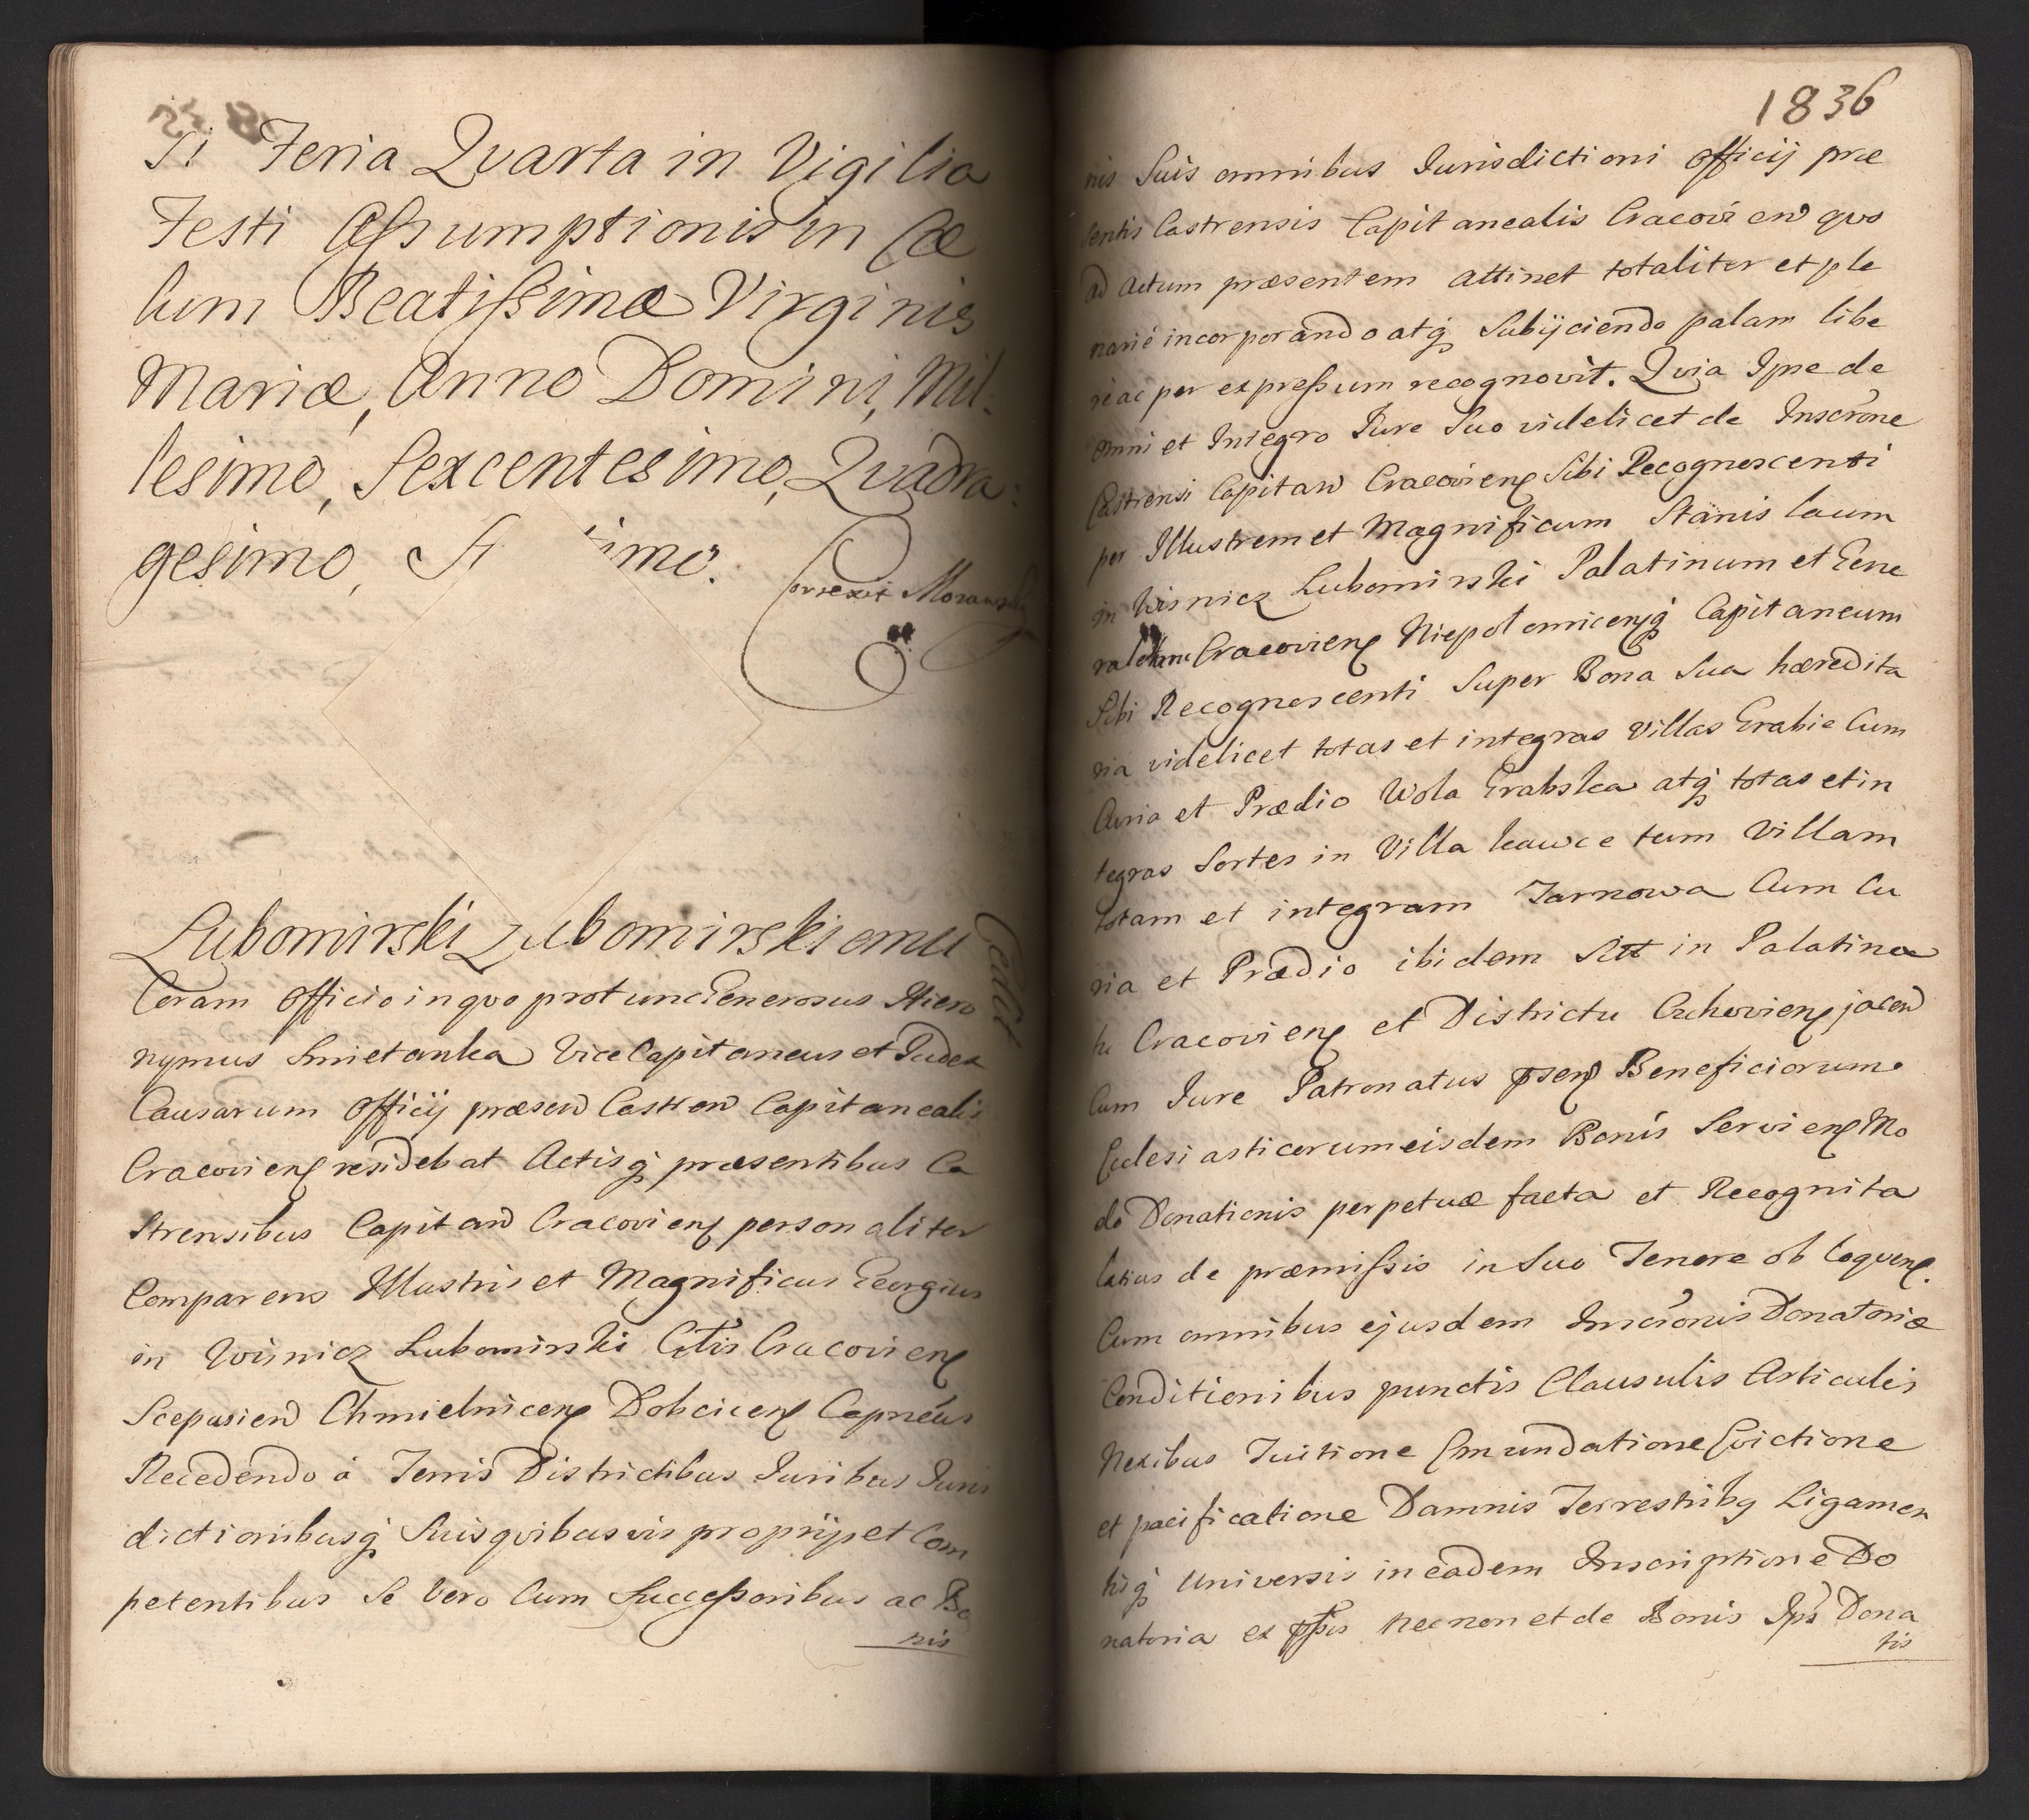 Feria Quarta in Vigilia
Festi Assumptionis in Cæ
lum Beatissimæ Virginis
Mariæ, Anno Domini, Mil:
lesimo, Sexcentesimo, Quadra:
gesimo, S imo.
Correxit Morawski
Lubomirski Lubomirskiemu
Cedit
Coram Officio in qvo pro tunc Generosus Hiero
nymus Smietanka Vice Capitaneus et Judex
Causarum Officij præsen Castren Capitanealis
Cracovien residebat Actisq præsentibus Ca
strensibus Capitan Cracovien personaliter
Comparens Illustris et Magnificus Georgius
in Wisnicz Lubomirski Cttis Cracovien
Scepusien Chmielnicen Dobcicen Capneus
Recedendo á Terris Districtibus Juribus Juris
dictionibusq Suis qvibusvis proprijs et Com
petentibus Se Vero Cum Successoribus ac Bo
nis
1836
nis Suis omnibus Jurisdictioni Officij præ
sentis Castrensis Capitanealis Cracovien qvo
ad Actum præsentem attinet totaliter et ple
narié incorporando atq Subijciendo palam libe
re ac per expressum recognovit. Qvia Ipse de
omni et Integro Jure Suo videlicet de Inscrone
Castrensi Capitan Cracovien Sibi Recognoscenti
per Illustrem et Magnificum Stanis laum
in Wisnicz Lubomirski Palatinum et Gene
ralem Cracovien Niepolomicenq Capitaneum
Sibi Recognoscenti Super Bona Sua hæredita
ria videlicet totas et integras Villas Grabie Cum
Curia et Prædio Wola Grabska atq totas et in
tegras Sortes in Villa kawce tum Villam
totam et integram Tarnowa Cum Cu
ria et Prædio ibidem Sitt in Palatina
tu Cracovien et Districtu Czchovien jacen
Cum Jure Patronatus psen Beneficiorum
Ecclesiasticorum eisdem Bonis Servien Mo
do Donationis perpetuæ facta et Recognita
latius de præmissis in Suo Tenore obloqven.
Cum omnibus ejusdem Inscronis Donatoriæ
Conditionibus punctis Clausulis Articulis
Nexibus Tuitione Emundatione Evictione
et pacificatione Damnis Terrestribq Ligamen
tisq Universis in eadem Inscriptione Do
natoria ex pssis necnon et de Bonis Ipis Dona
tis